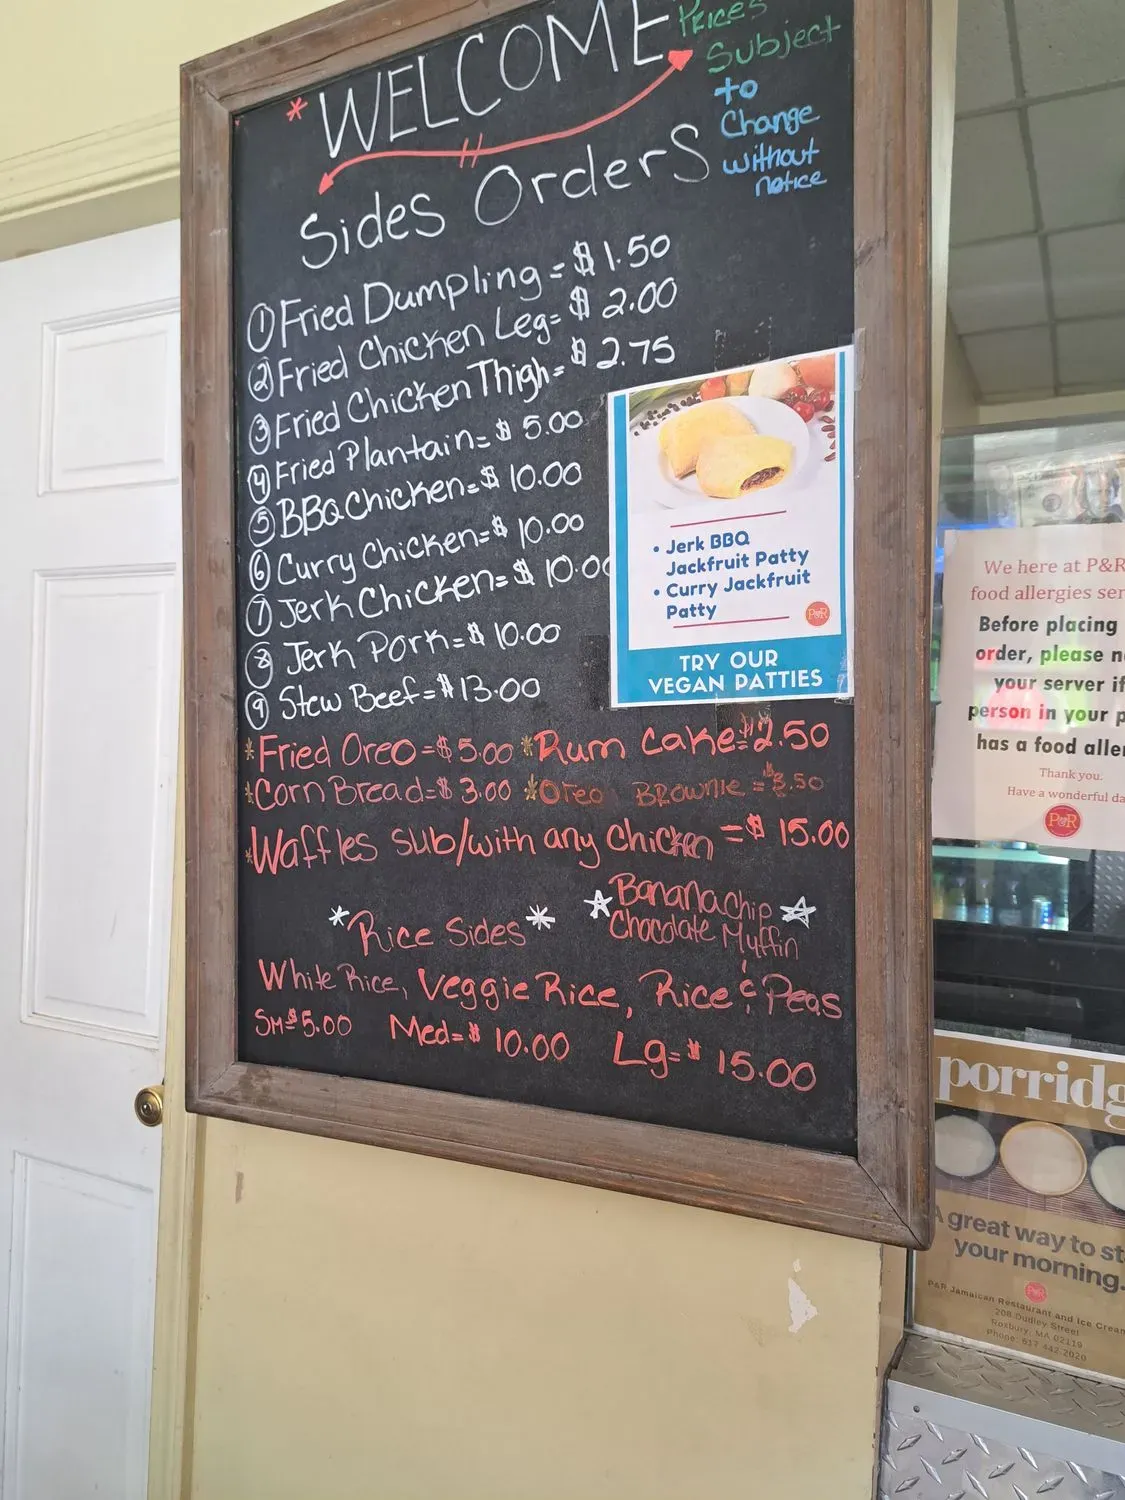 * WELCOME
Prices
Subject
to
Change
without
notice
Sides Orders
① Fried Dumpling = $ 1.50
② Fried Chicken Leg = $ 2.00
③ Fried Chicken Thigh = $ 2.75
④ Fried Plantain = $ 5.00
⑤ BBQ Chicken = $ 10.00
⑥ Curry Chicken = $ 10.00
⑦ Jerk Chicken = $ 10.00
⑧ Jerk Pork = $ 10.00
⑨ Stew Beef = $ 13.00
* Fried Oreo = $ 5.00 * Rum Cake = $ 2.50
* Corn Bread = $ 3.00 * Oreo Brownie = $ 3.50
* Waffles sub/with any chicken = $ 15.00
* Rice Sides *
☆ Banana chip ☆
Chocolate Muffin
White Rice, Veggie Rice, Rice & Peas
Sm = $ 5.00 Med = $ 10.00 Lg = $ 15.00
• Jerk BBQ
Jackfruit Patty
• Curry Jackfruit
Patty
P&R
TRY OUR
VEGAN PATTIES
We here at P&R
food allergies ser
Before placing
order, please n
your server if
person in your p
has a food aller
Thank you.
Have a wonderful da
P&R
porridg
A great way to st
your morning.
P&R
P&R Jamaican Restaurant and Ice Cream
208 Dudley Street
Roxbury, MA 02119
Phone: 617 442.2020